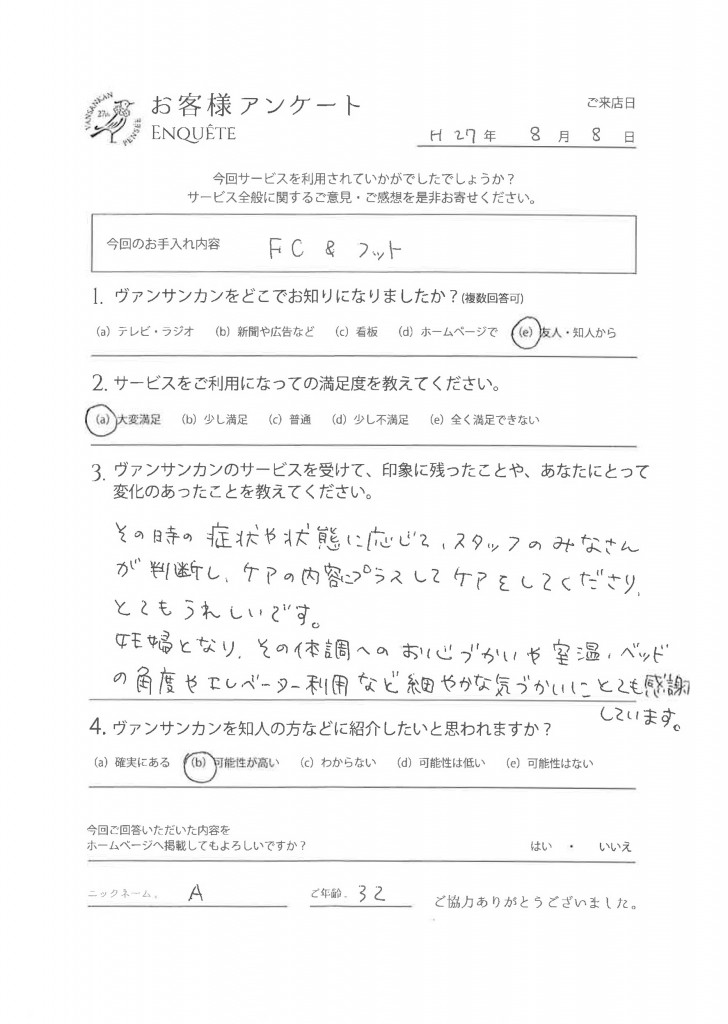 VANSANKAN
27th
PENSÉE
お客様アンケート
ENQUÊTE
ご来店日
H 27 年 8 月 8 日
今回サービスを利用されていかがでしたでしょうか？
サービス全般に関するご意見・ご感想を是非お寄せください。
今回のお手入れ内容 FC & フット
1. ヴァンサンカンをどこでお知りになりましたか？(複数回答可)
(a) テレビ・ラジオ (b) 新聞や広告など (c) 看板 (d) ホームページで (e) 友人・知人から
2. サービスをご利用になっての満足度を教えてください。
(a) 大変満足 (b) 少し満足 (c) 普通 (d) 少し不満足 (e) 全く満足できない
3. ヴァンサンカンのサービスを受けて、印象に残ったことや、あなたにとって
変化のあったことを教えてください。
その時の症状や状態に応じて、スタッフのみなさん
が判断し、ケアの内容にプラスしてケアをしてくださり、
とてもうれしいです。
妊婦となり、その体調へのお心づかいや室温・ベッド
の角度やエレベーター利用など細やかな気づかいにとても感謝
しています。
4. ヴァンサンカンを知人の方などに紹介したいと思われますか？
(a) 確実にある (b) 可能性が高い (c) わからない (d) 可能性は低い (e) 可能性はない
今回ご回答いただいた内容を
ホームページへ掲載してもよろしいですか？ はい ・ いいえ
ニックネーム. A ご年齢. 32 ご協力ありがとうございました。